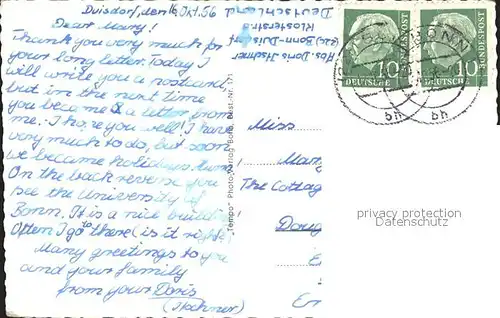 Duisdorf, den 16. Okt. 56
Dear Mary!
Thank you very much for
your long letter. Today I
will write you a postcard
but in the next time
you became a letter from
me. I hope you well! I have
very much to do, but soon
we became holidays.
On the back reverse you
see the University of
Bonn. It is a nice building
Often I go to there (is it right?)
Many greetings to you
and your family
from your Doris
Abs. Doris
Klosterstr
(22c) Bonn-Duisdorf
Deutschland
"Tempo" Photo-Verlag Bonn, Best.-Nr. 121
DEUTSCHE BUNDESPOST
10
DEUTSCHE BUNDESPOST
10
BONN
bh
bh
Miss
Mary
The Cottag
Doug
E
Er
privacy protection
Datenschutz